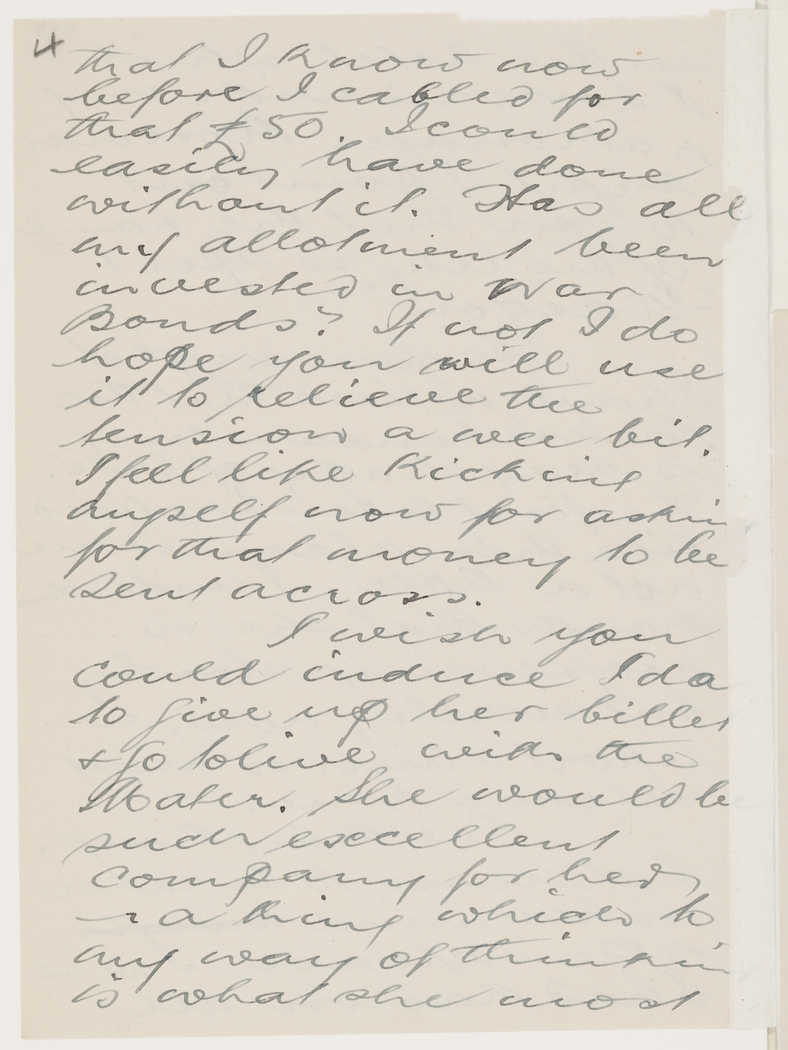 4
that I know now
before I cabled for
that £50. I could
easily have done
without it. Has all
my allotment been
invested in War
Bonds? If not I do
hope you will use
it to relieve the
tension a wee bit.
I feel like Kicking
myself now for askin
for that money to be
sent across.
I wish you
could induce Ida
to give up her billet
& go to live with the
Mater. She would be
such excellent
company for her,
- a thing which to
my way of thinkin
is what she most